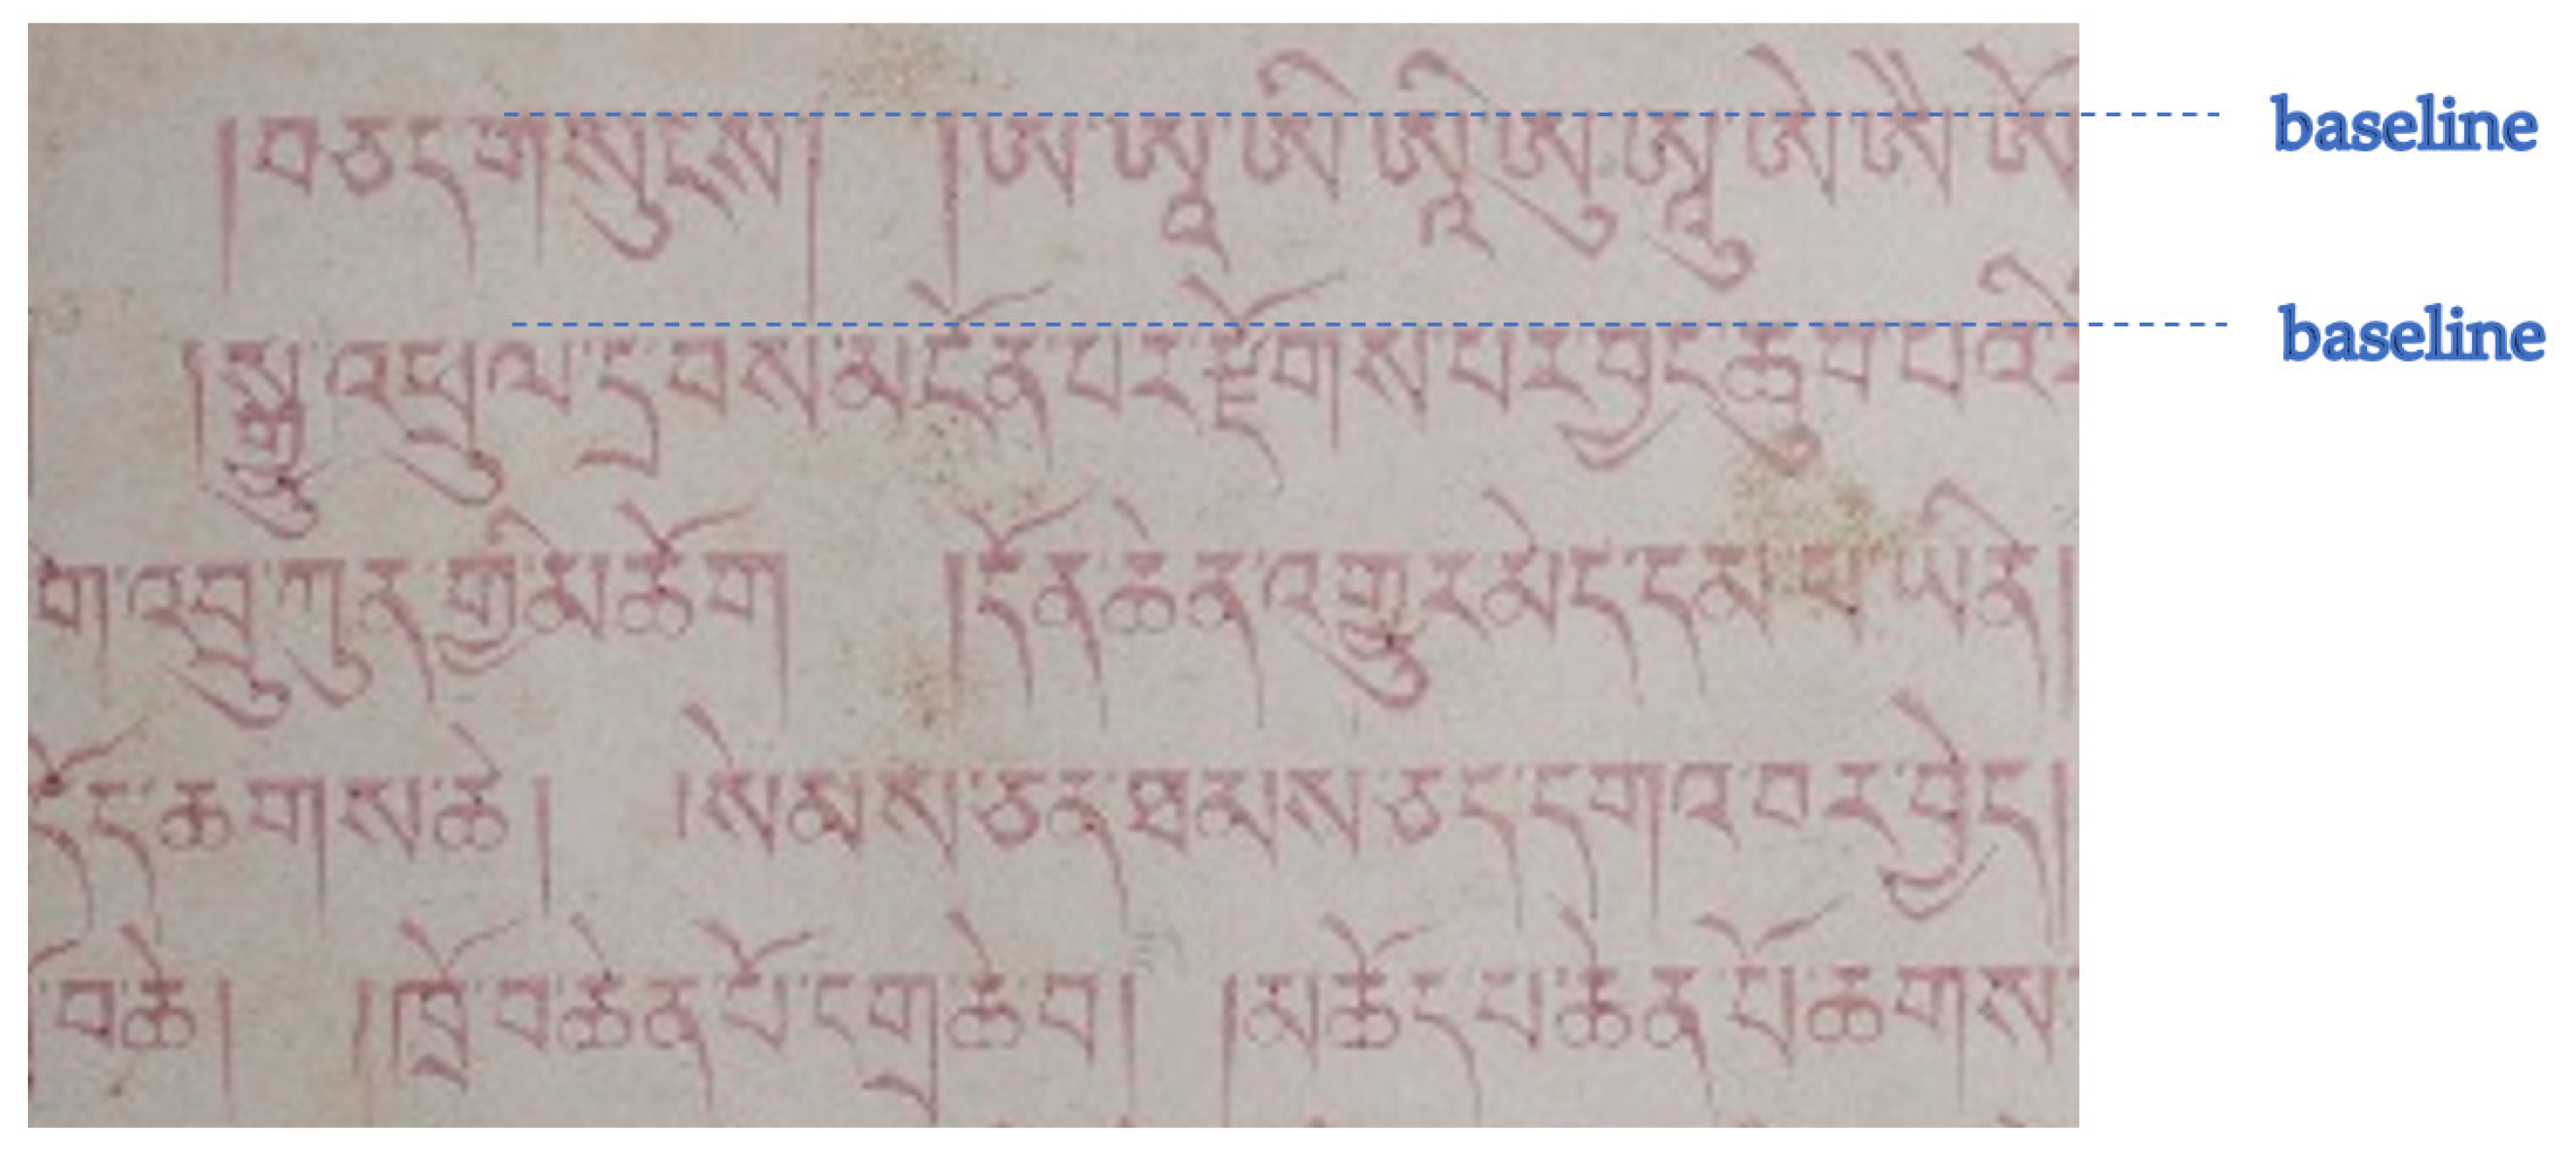 །བཅད་གསུངས། །ཨ་ཨཱ་ཨི་ཨཱི་ཨུ་ཨཱུ་ཨེ་ཨཻ་ཨོ baseline
།སྒྱུ་འཕྲུལ་དྲ་བས་མངོན་པར་རྫོགས་པར་བྱང་ཆུབ་པའི baseline
ག་འབྲུ་ཀུན་གྱི་མཆོག །དོན་ཆེན་འགྱུར་མེད་དམ་པ་ཡིན།
དོད་ཆགས་ཆེ། །སེམས་ཅན་ཐམས་ཅད་དགའ་བར་བྱེད།
བ་ཆེ། །ཁྲོ་བ་ཆེན་པོ་དགྲ་ཆེ་བ། །མཆོད་པ་ཆེན་པོ་ཆགས་